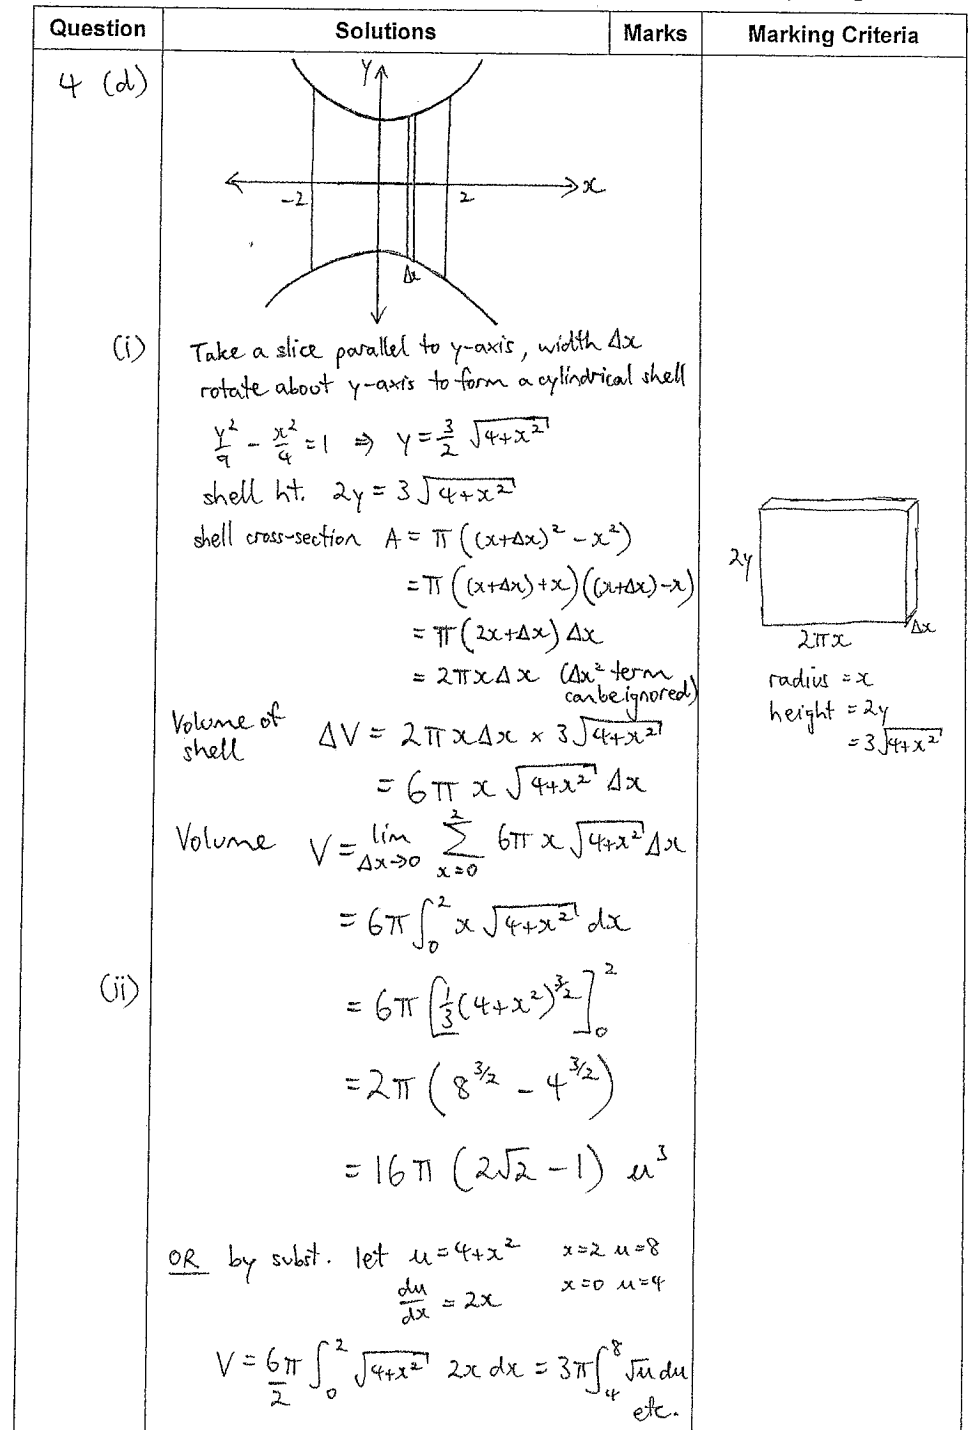 Question Solutions Marks Marking Criteria
4 (d)
y
x
-2 2
Δx
(i) Take a slice parallel to y-axis, width Δx
rotate about y-axis to form a cylindrical shell
y²/9 - x²/4 = 1 ⇒ y = 3/2 √(4+x²)
shell ht. 2y = 3√(4+x²)
shell cross-section A = π((x+Δx)² - x²)
= π((x+Δx)+x)((x+Δx)-x)
= π(2x+Δx)Δx
= 2πxΔx (Δx² term can be ignored)
Volume of shell ΔV = 2πxΔx × 3√(4+x²)
= 6πx√(4+x²) Δx
2y
2πx
Δx
radius = x
height = 2y
= 3√(4+x²)
Volume V = lim Δx→0 Σ x=0 2 6πx√(4+x²)Δx
= 6π∫₀² x√(4+x²) dx
(ii) = 6π[1/3(4+x²)^3/2]₀²
= 2π(8^3/2 - 4^3/2)
= 16π(2√2 - 1) u³
OR by subst. let u = 4+x² x=2 u=8
du/dx = 2x x=0 u=4
V = 6π/2 ∫₀² √(4+x²) 2x dx = 3π∫₄⁸ √u du
etc.